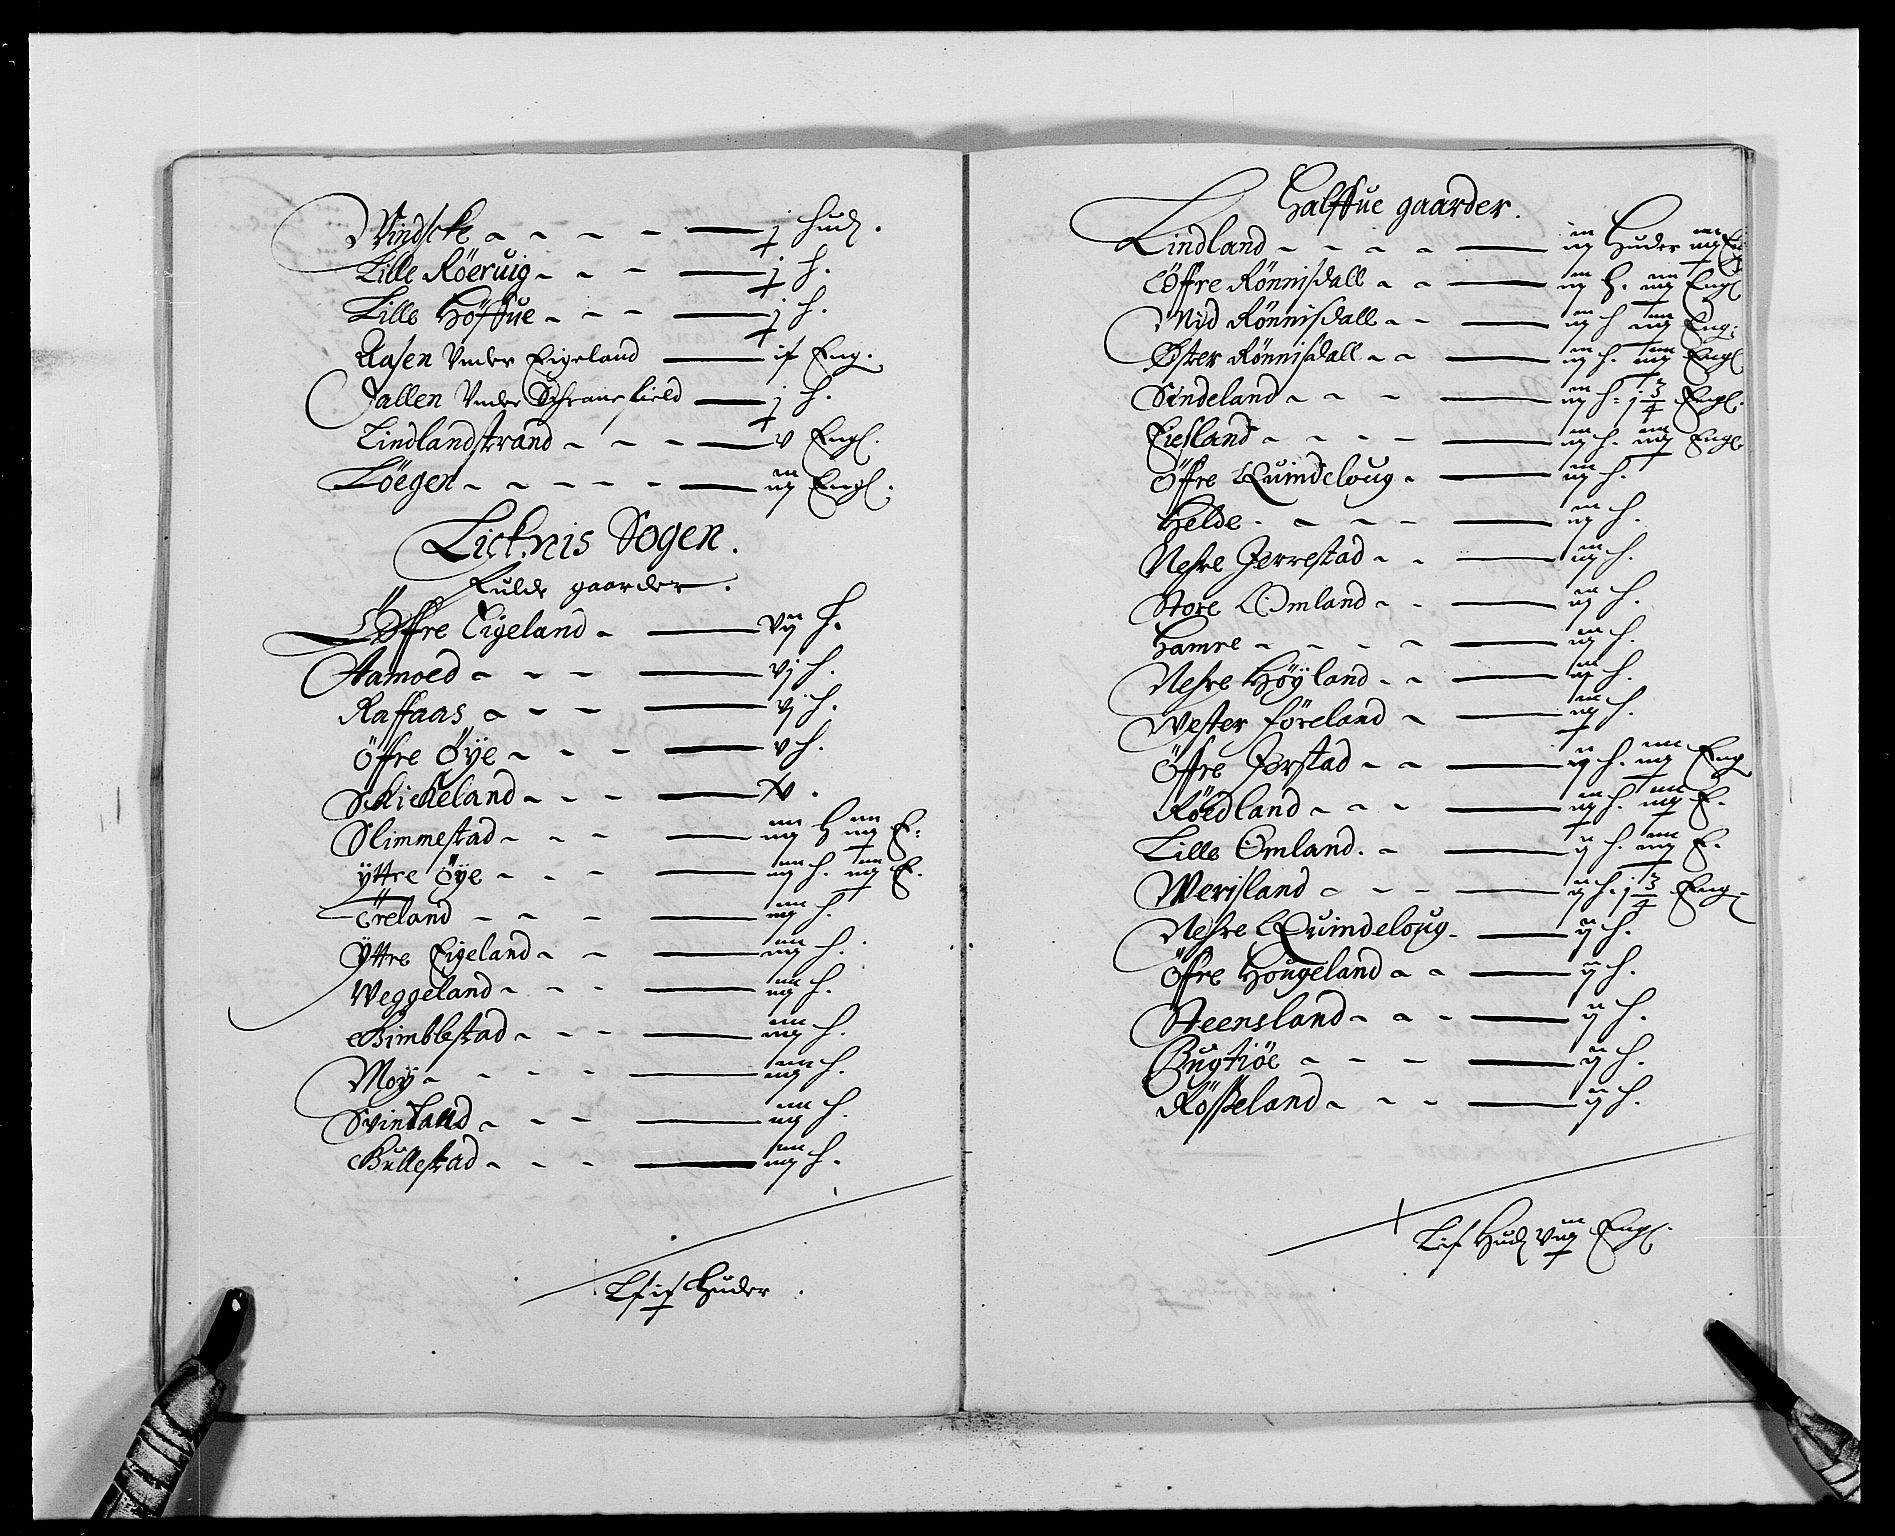 Vindscke - - - - j Hud.
Lille Röeruig - - - j h.
Lille Höffue - - - j h.
Aasen Vnder Eigeland if Eng.
Fallen Vnder j h.
Lindlandstrand - - - v Engl.
Löegen - - - - - iij Engl.
Licknis Sogen.
Fulde gaarder.
Öffre Eigeland - vij h.
Aamoed - - - vj h.
Raffaas - - - vj h.
Öfre Öÿe - - - v h.
Schickeland - - - v.
Slimmestad - - - iiij H iiij E.
ÿttre Öÿe - - - iiij h. iiij E.
Öreland - - - iiij h.
Ÿttre Eigeland - - iiij h.
Weggeland - - - iiij h.
Gimblestad - - - iiij h.
Moÿ - - - - - iiij h.
Svinland - - - iiij h.
Gullestad - - - iiij h.
Lfif Huder.
Halffue gaarder.
Lindland - - - - iij Huder iiij
Öffre Rönnisdall - - iij h. iiij Engl
Mid Rönnisdall - - iij h iiij Eng:
Øster Rönnisdall - - iij h. iiij Engl
Sindeland - - - iij h. j 3/4 Engl.
Eiesland - - - - iij h. iiij Engl
Öffre Quindeloug - iij h.
Helde - - - - iij h.
Nehre Jerrestad - - iij h.
Store Omland - - iij h.
Hamre - - - - iij h.
Nehre Höÿland - - iij h.
Wester Föreland - iij h.
Öffre Jerstad - - ij h. iiij Eng
Röedland - - - iij h. iiij E.
Lille Omland. - ij h. iiij E.
Werisland - - - ij h. j 3/4 Eng.
Nehre Quindeloug - ij h.
Öfre Hougeland - - ij h.
Steensland - - - ij h.
Bugtiöe - - - ij h.
Rösseland - - - ij h.
Lif Hud viij Engl.